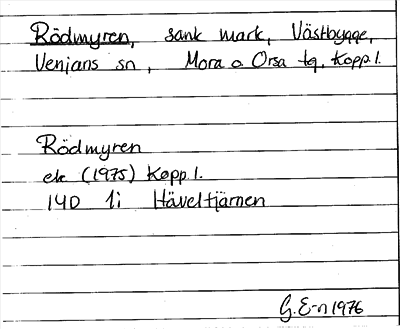 Rödmyren, sank mark, Västbygge,
Venjans sn, Mora o Orsa tg, Kopp l.
Rödmyren
ek (1975) Kopp l.
14D 1i Häveltjärnen
G. E-n 1976